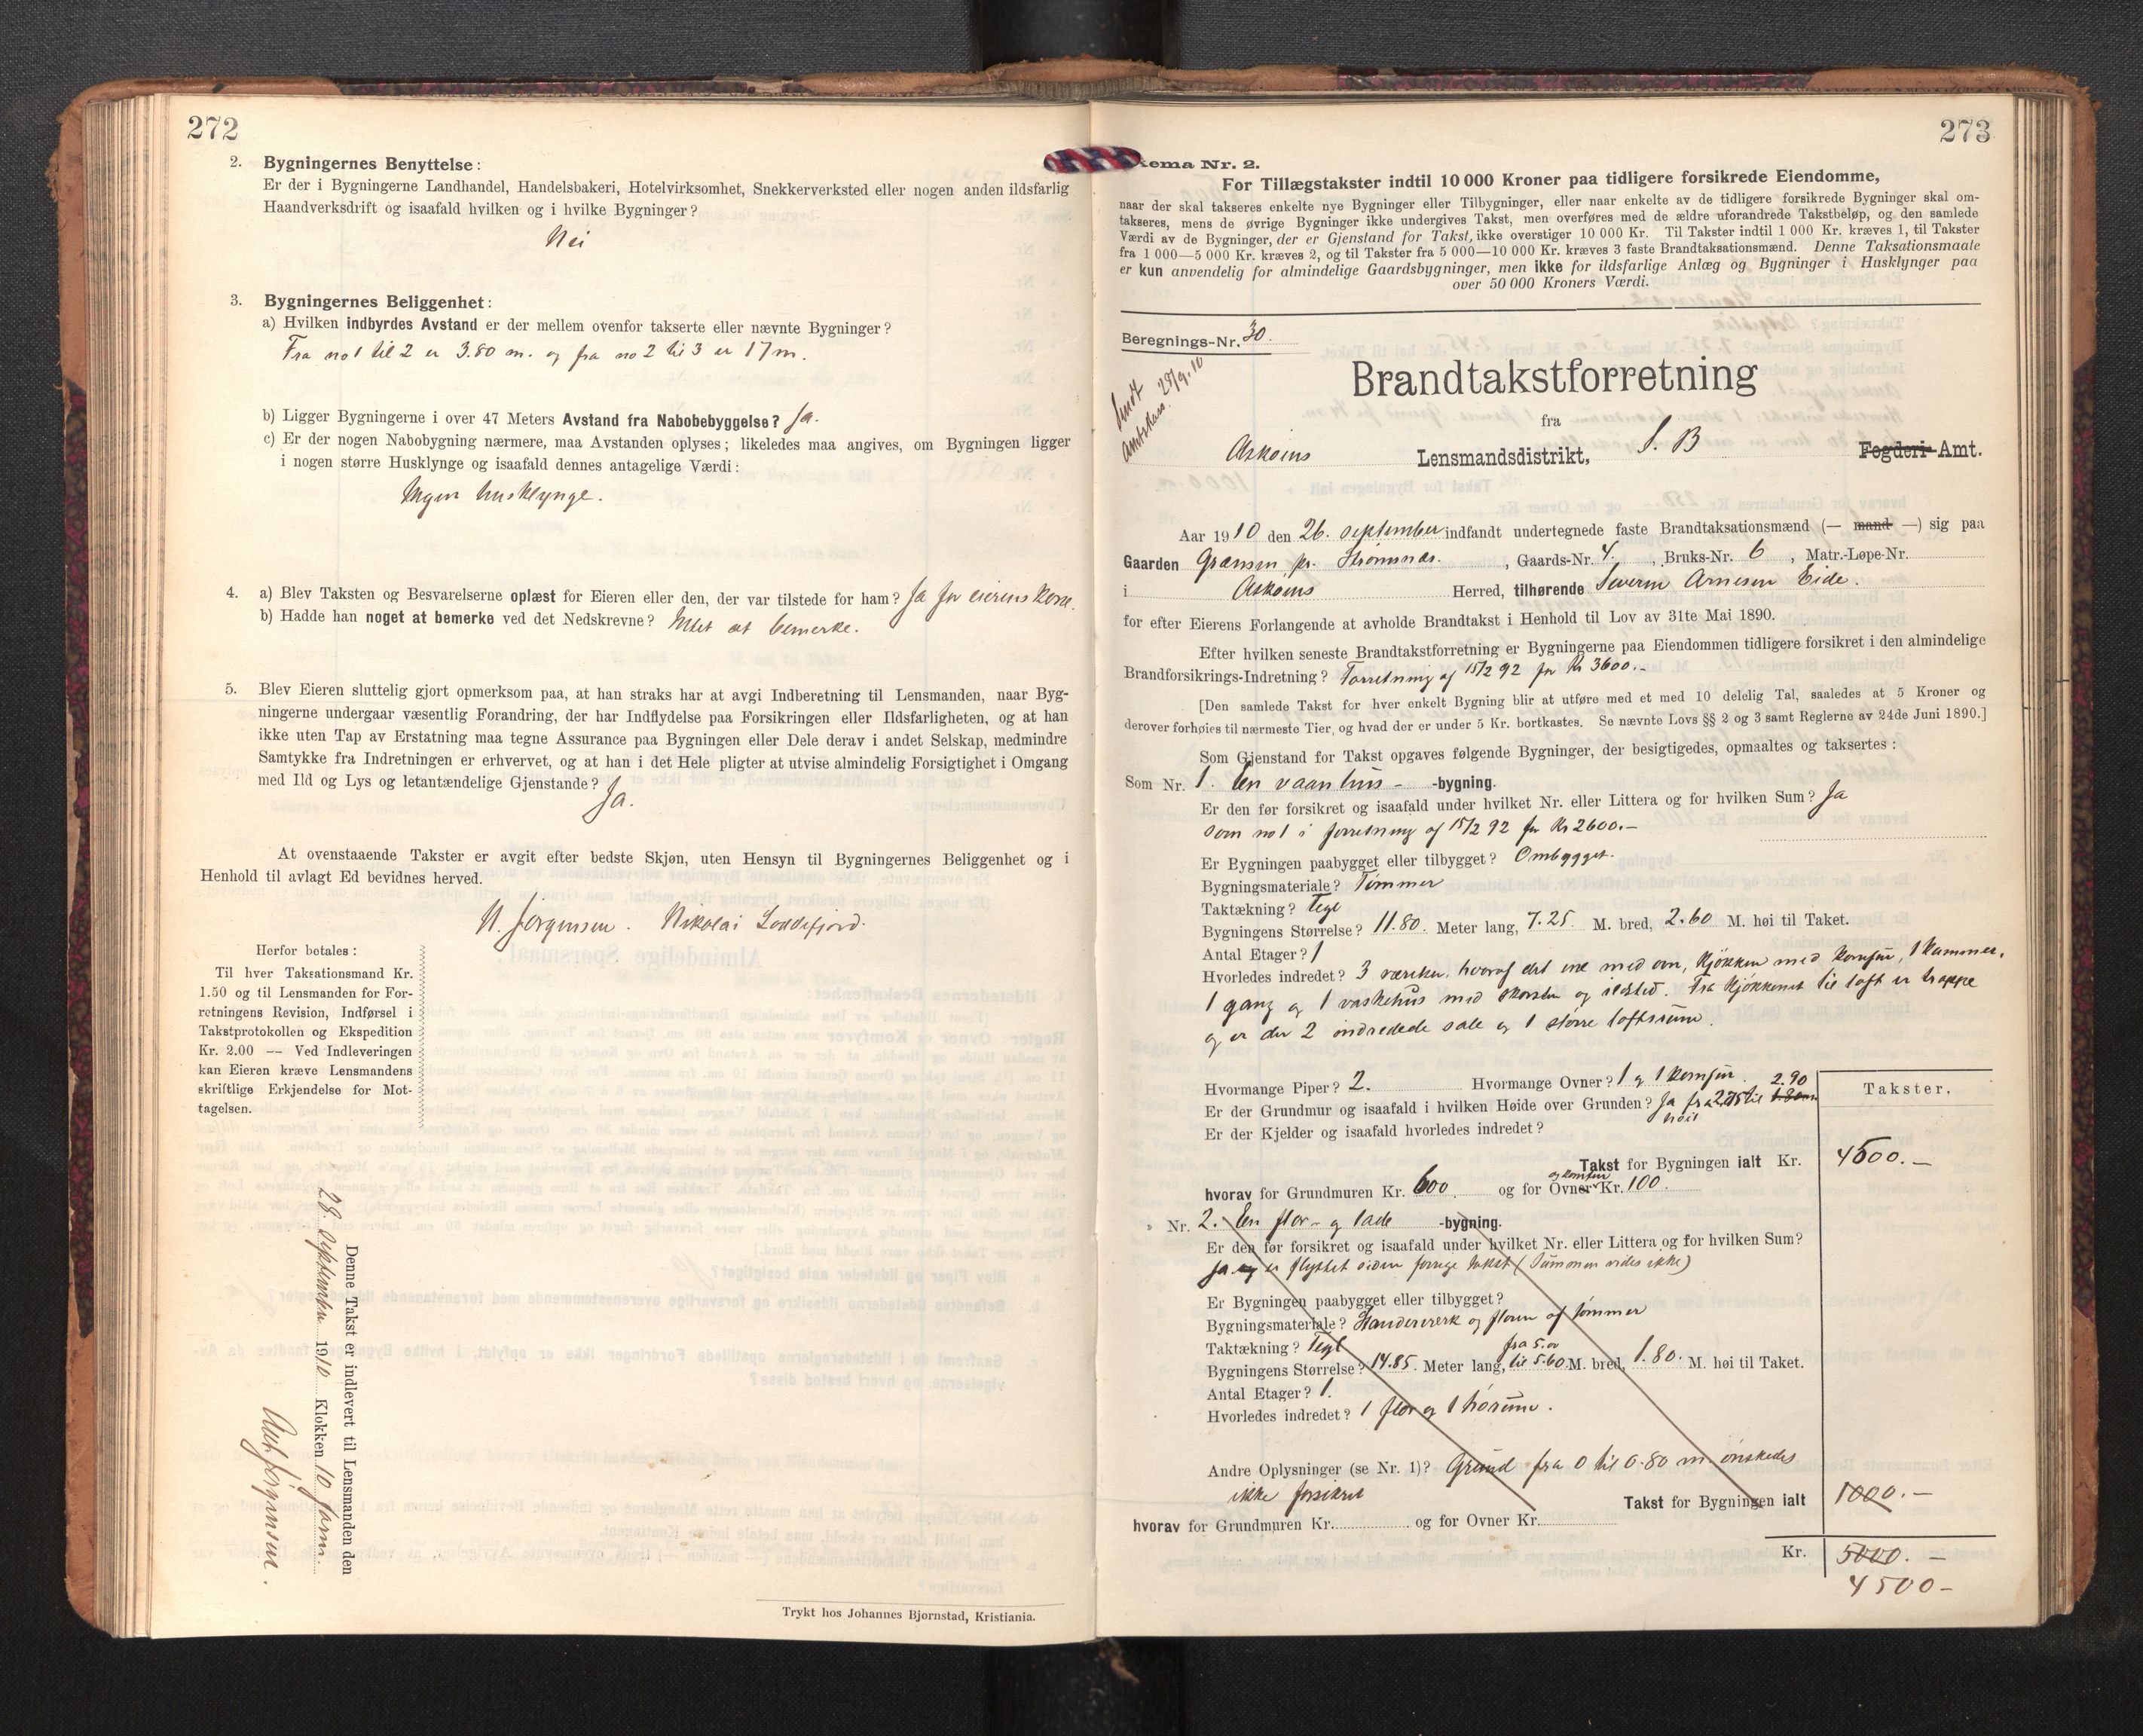 272
2. Bygningernes Benyttelse:
Er der i Bygningerne Landhandel, Handelsbakeri, Hotelvirksomhet, Snekkerverksted eller nogen anden ildsfarlig
Haandverksdrift og isaafald hvilken og i hvilke Bygninger?
Nei
3. Bygningernes Beliggenhet:
a) Hvilken indbyrdes Avstand er der mellem ovenfor takserte eller nævnte Bygninger?
Fra no 1 til 2 er 3.80 m. og fra no 2 til 3 er 17 m.
b) Ligger Bygningerne i over 47 Meters Avstand fra Nabobebyggelse? Ja.
c) Er der nogen Nabobygning nærmere, maa Avstanden oplyses; likeledes maa angives, om Bygningen ligger
i nogen større Husklynge og isaafald dennes antagelige Værdi:
Ingen husklynge.
4. a) Blev Taksten og Besvarelserne oplæst for Eieren eller den, der var tilstede for ham? Ja for eierens kone.
b) Hadde han noget at bemerke ved det Nedskrevne? Intet at bemerke.
5. Blev Eieren sluttelig gjort opmerksom paa, at han straks har at avgi Indberetning til Lensmanden, naar Byg-
ningerne undergaar væsentlig Forandring, der har Indflydelse paa Forsikringen eller Ildsfarligheten, og at han
ikke uten Tap av Erstatning maa tegne Assurance paa Bygningen eller Dele derav i andet Selskap, medmindre
Samtykke fra Indretningen er erhvervet, og at han i det Hele pligter at utvise almindelig Forsigtighet i Omgang
med Ild og Lys og letantændelige Gjenstande?
Ja.
At ovenstaaende Takster er avgit efter bedste Skjøn, uten Hensyn til Bygningernes Beliggenhet og i
Henhold til avlagt Ed bevidnes herved.
N. Jørgensen. Nikolai Loddefjord.
Herfor betales:
Til hver Taksationsmand Kr.
1.50 og til Lensmanden for For-
retningens Revision, Indførsel i
Takstprotokollen og Ekspedition
Kr. 2.00 — Ved Indleveringen
kan Eieren kræve Lensmandens
skriftlige Erkjendelse for Mot-
tagelsen.
Denne Takst er indlevert til Lensmanden den
28. september 1910 Klokken 10 form
Trykt hos Johannes Bjørnstad, Kristiania.
273
kema Nr. 2.
For Tillægstakster indtil 10 000 Kroner paa tidligere forsikrede Eiendomme,
naar der skal takseres enkelte nye Bygninger eller Tilbygninger, eller naar enkelte av de tidligere forsikrede Bygninger skal om-
takseres, mens de øvrige Bygninger ikke undergives Takst, men overføres med de ældre uforandrede Takstbeløp, og den samlede
Værdi av de Bygninger, der er Gjenstand for Takst, ikke overstiger 10 000 Kr. Til Takster indtil 1 000 Kr. kræves 1, til Takster
fra 1 000—5 000 Kr. kræves 2, og til Takster fra 5 000—10 000 Kr. kræves 3 faste Brandtaksationsmænd. Denne Taksationsmaate
er kun anvendelig for almindelige Gaardsbygninger, men ikke for ildsfarlige Anlæg og Bygninger i Husklynger paa
over 50 000 Kroners Værdi.
Beregnings-Nr. 30.
Sendt
Amtskass. 29/9.10
Brandtakstforretning
fra
Askøens Lensmandsdistrikt, S. B Fogderi-Amt.
Aar 1910 den 26. september indfandt undertegnede faste Brandtaksationsmænd (— mand —) sig paa
Gaarden Grænsen pr. Strømsnæs., Gaards-Nr. 4., Bruks-Nr. 6, Matr.-Løpe-Nr.
i Askøens Herred, tilhørende Severin Arnesen Eide.
for efter Eierens Forlangende at avholde Brandtakst i Henhold til Lov av 31te Mai 1890.
Efter hvilken seneste Brandtakstforretning er Bygningerne paa Eiendommen tidligere forsikret i den almindelige
Brandforsikrings-Indretning? Forretning af 15/2 92 for Kr 3600.-
[Den samlede Takst for hver enkelt Bygning blir at utføre med et med 10 delelig Tal, saaledes at 5 Kroner og
derover forhøies til nærmeste Tier, og hvad der er under 5 Kr. bortkastes. Se nævnte Lovs §§ 2 og 3 samt Reglerne av 24de Juni 1890.]
Som Gjenstand for Takst opgaves følgende Bygninger, der besigtigedes, opmaaltes og taksertes:
Som Nr. 1. En vaanhus- -bygning.
Er den før forsikret og isaafald under hvilket Nr. eller Littera og for hvilken Sum? Ja
som no 1 i forretning af 15/2 92 for Kr 2600.-
Er Bygningen paabygget eller tilbygget? Ombygget.
Bygningsmateriale? Tømmer
Taktækning? Tegl
Bygningens Størrelse? 11.80. Meter lang, 7.25. M. bred, 2.60 M. høi til Taket.
Antal Etager? 1
Hvorledes indredet? 3 værelser, hvoraf det ene med ovn, kjøkken med komfur, 1 kammer,
1 gang og 1 vaskehus med skorsten og ildsted. Fra kjøkkenet til loft er trappe
og er der 2 indredede sale og 1 større loftsrum.
Hvormange Piper? 2. Hvormange Ovner? 1 og 1 komfur.
Er der Grundmur og isaafald i hvilken Høide over Grunden? Ja fra 2.75 til 1.80m 2.90
høit
Er der Kjelder og isaafald hvorledes indredet?
Takster.
Takst for Bygningen ialt Kr. 4500.—
hvorav for Grundmuren Kr. 600 og for Ovner og komfur Kr. 100.
" Nr. 2. En flor- og lade -bygning.
Er den før forsikret og isaafald under hvilket Nr. eller Littera og for hvilken Sum?
Ja og er flyttet siden forrige takst (Summen vides ikke)
Er Bygningen paabygget eller tilbygget?
Bygningsmateriale? Standerverk og floren af tømmer
Taktækning? Tegl
Bygningens Størrelse? 14.85. Meter lang, fra 5.00 til 5.60 M. bred, 1.80. M. høi til Taket.
Antal Etager? 1.
Hvorledes indredet? 1 flor og 1 hørum.
Andre Oplysninger (se Nr. 1)? Grund fra 0 til 0.80 m. ønskedes
ikke forsikret
Takst for Bygningen ialt 1000.—
hvorav for Grundmuren Kr. og for Ovner Kr.
Kr. 5000.—
4500-